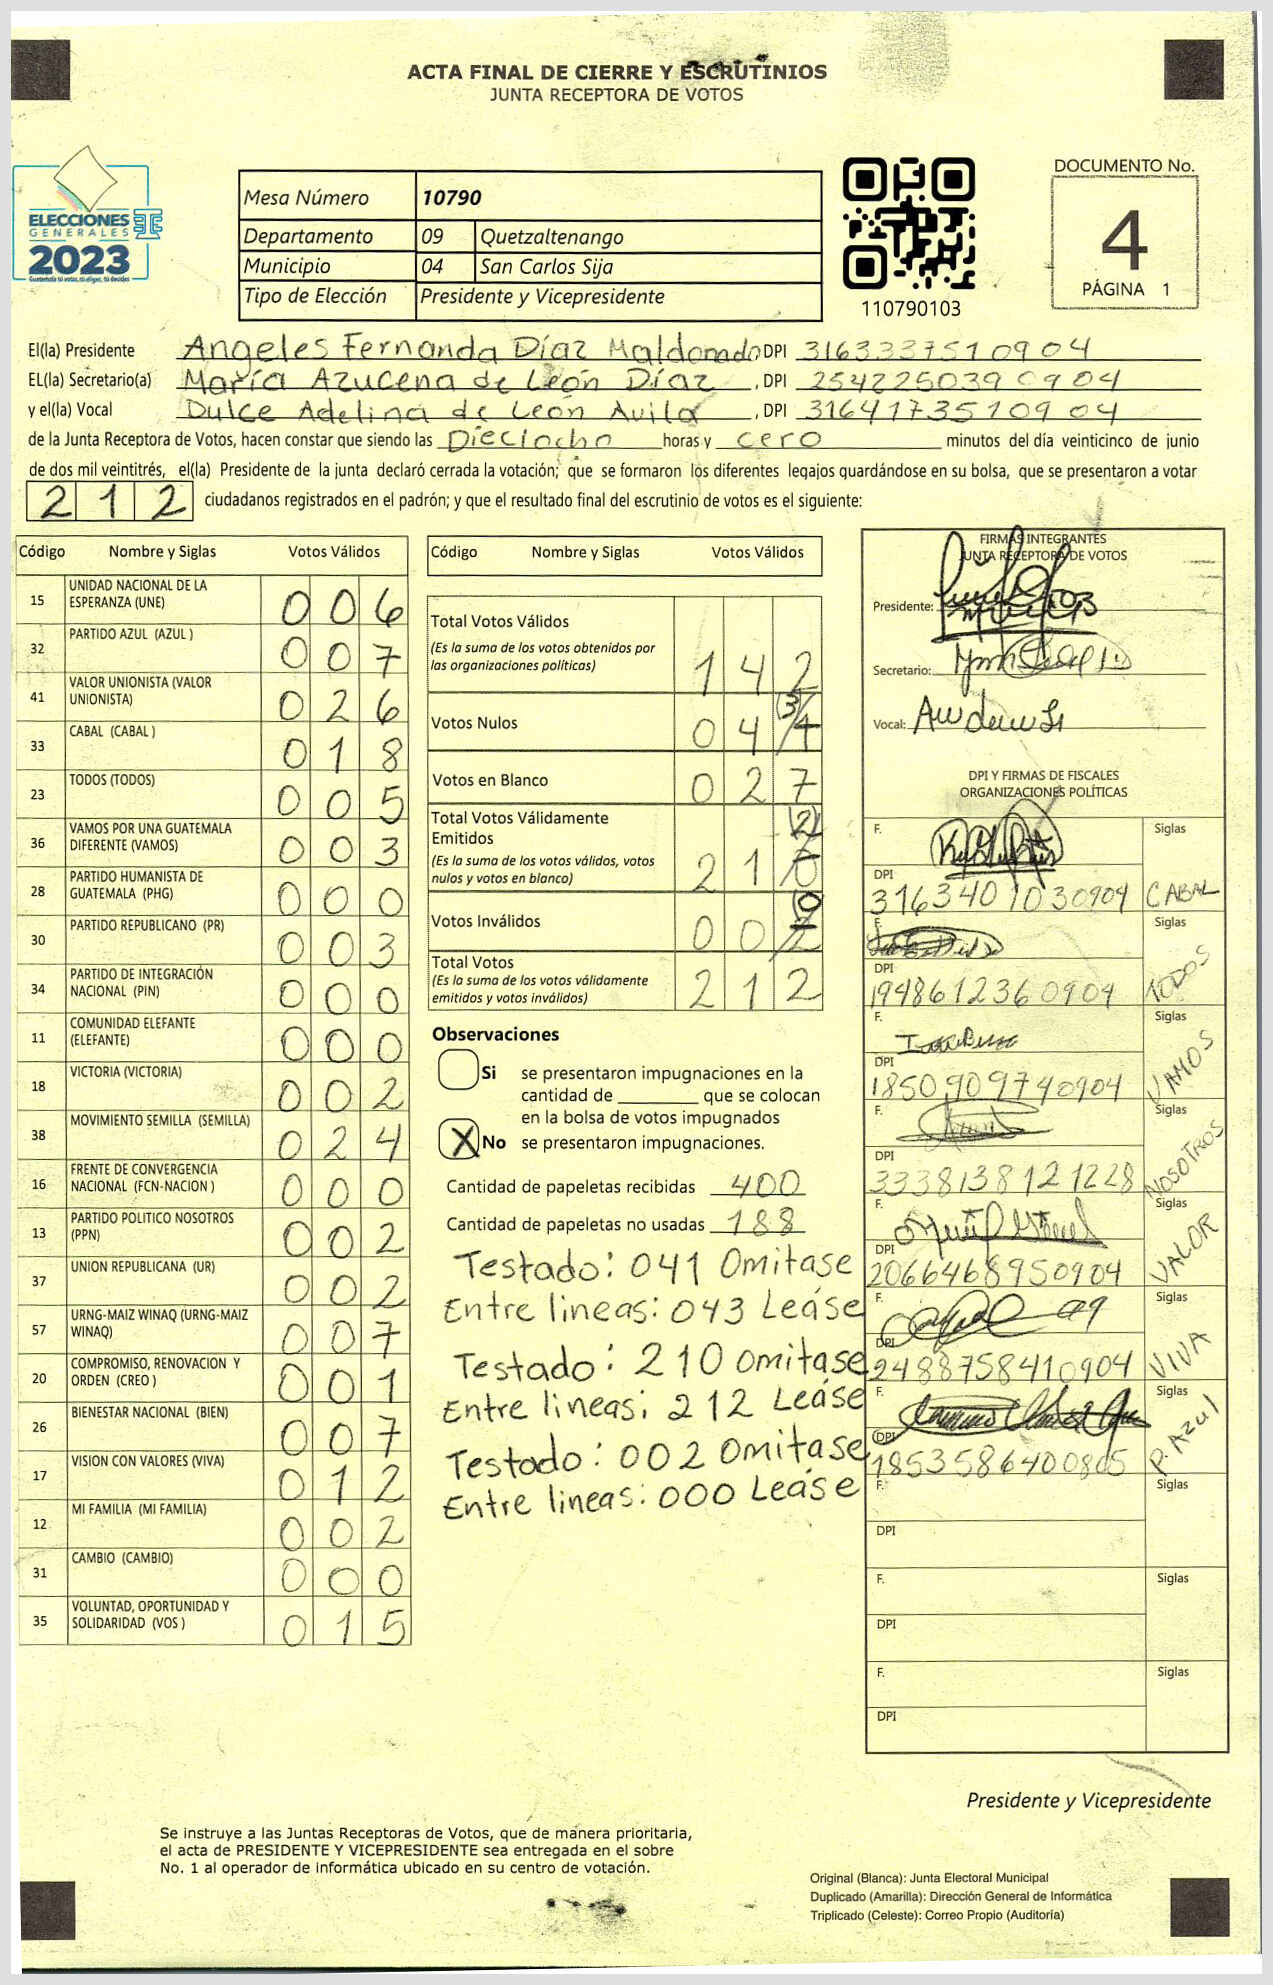 ACTA FINAL DE CIERRE Y ESCRUTINIOS
JUNTA RECEPTORA DE VOTOS
ELECCIONES
GENERALES
2023
Guatemala tú votas, tú eliges, tú decides
Mesa Número 10790
Departamento 09 Quetzaltenango
Municipio 04 San Carlos Sija
Tipo de Elección Presidente y Vicepresidente
110790103
DOCUMENTO No.
4
PÁGINA 1
El(la) Presidente Angeles Fernanda Díaz Maldonado DPI 3163337510904
EL(la) Secretario(a) María Azucena de León Díaz , DPI 2542250390904
y el(la) Vocal Dulce Adelina de León Avila , DPI 3164173510904
de la Junta Receptora de Votos, hacen constar que siendo las Dieciocho horas y cero minutos del día veinticinco de junio
de dos mil veintitrés, el(la) Presidente de la junta declaró cerrada la votación; que se formaron los diferentes legajos guardándose en su bolsa, que se presentaron a votar
212 ciudadanos registrados en el padrón; y que el resultado final del escrutinio de votos es el siguiente:
Código Nombre y Siglas Votos Válidos
15 UNIDAD NACIONAL DE LA ESPERANZA (UNE) 006
32 PARTIDO AZUL (AZUL ) 007
41 VALOR UNIONISTA (VALOR UNIONISTA) 026
33 CABAL (CABAL ) 018
23 TODOS (TODOS) 005
36 VAMOS POR UNA GUATEMALA DIFERENTE (VAMOS) 003
28 PARTIDO HUMANISTA DE GUATEMALA (PHG) 000
30 PARTIDO REPUBLICANO (PR) 003
34 PARTIDO DE INTEGRACIÓN NACIONAL (PIN) 000
11 COMUNIDAD ELEFANTE (ELEFANTE) 000
18 VICTORIA (VICTORIA) 002
38 MOVIMIENTO SEMILLA (SEMILLA) 024
16 FRENTE DE CONVERGENCIA NACIONAL (FCN-NACION ) 000
13 PARTIDO POLITICO NOSOTROS (PPN) 002
37 UNION REPUBLICANA (UR) 002
57 URNG-MAIZ WINAQ (URNG-MAIZ WINAQ) 007
20 COMPROMISO, RENOVACION Y ORDEN (CREO ) 001
26 BIENESTAR NACIONAL (BIEN) 007
17 VISION CON VALORES (VIVA) 012
12 MI FAMILIA (MI FAMILIA) 002
31 CAMBIO (CAMBIO) 000
35 VOLUNTAD, OPORTUNIDAD Y SOLIDARIDAD (VOS ) 015
Código Nombre y Siglas Votos Válidos
Total Votos Válidos 142
(Es la suma de los votos obtenidos por
las organizaciones políticas)
Votos Nulos 043
Votos en Blanco 027
Total Votos Válidamente
Emitidos 212
(Es la suma de los votos válidos, votos
nulos y votos en blanco)
Votos Inválidos 000
Total Votos 212
(Es la suma de los votos válidamente
emitidos y votos inválidos)
Observaciones
Si se presentaron impugnaciones en la
cantidad de ________ que se colocan
en la bolsa de votos impugnados
X No se presentaron impugnaciones.
Cantidad de papeletas recibidas 400
Cantidad de papeletas no usadas 188
Testado: 041 Omitase
Entre lineas: 043 Leáse
Testado: 210 omitase
Entre lineas: 212 Leáse
Testado: 002 Omitase
Entre lineas: 000 Leáse
FIRMAS INTEGRANTES
JUNTA RECEPTORA DE VOTOS
Presidente:
Secretario:
Vocal:
DPI Y FIRMAS DE FISCALES
ORGANIZACIONES POLÍTICAS
F. Siglas
DPI
3163401030904 CABAL
F. Siglas
DPI
1948612360904 TODOS
F. Siglas
DPI
1850909740904 VAMOS
F. Siglas
DPI
3338138121228 NOSOTROS
F. Siglas
DPI
2066468950904 VALOR
F. Siglas
DPI
2488758410904 VIVA
F. Siglas
DPI
1853586400805 P. Azul
F. Siglas
DPI
F. Siglas
DPI
F. Siglas
DPI
Presidente y Vicepresidente
Se instruye a las Juntas Receptoras de Votos, que de manera prioritaria,
el acta de PRESIDENTE Y VICEPRESIDENTE sea entregada en el sobre
No. 1 al operador de informática ubicado en su centro de votación.
Original (Blanca): Junta Electoral Municipal
Duplicado (Amarilla): Dirección General de Informática
Triplicado (Celeste): Correo Propio (Auditoría)